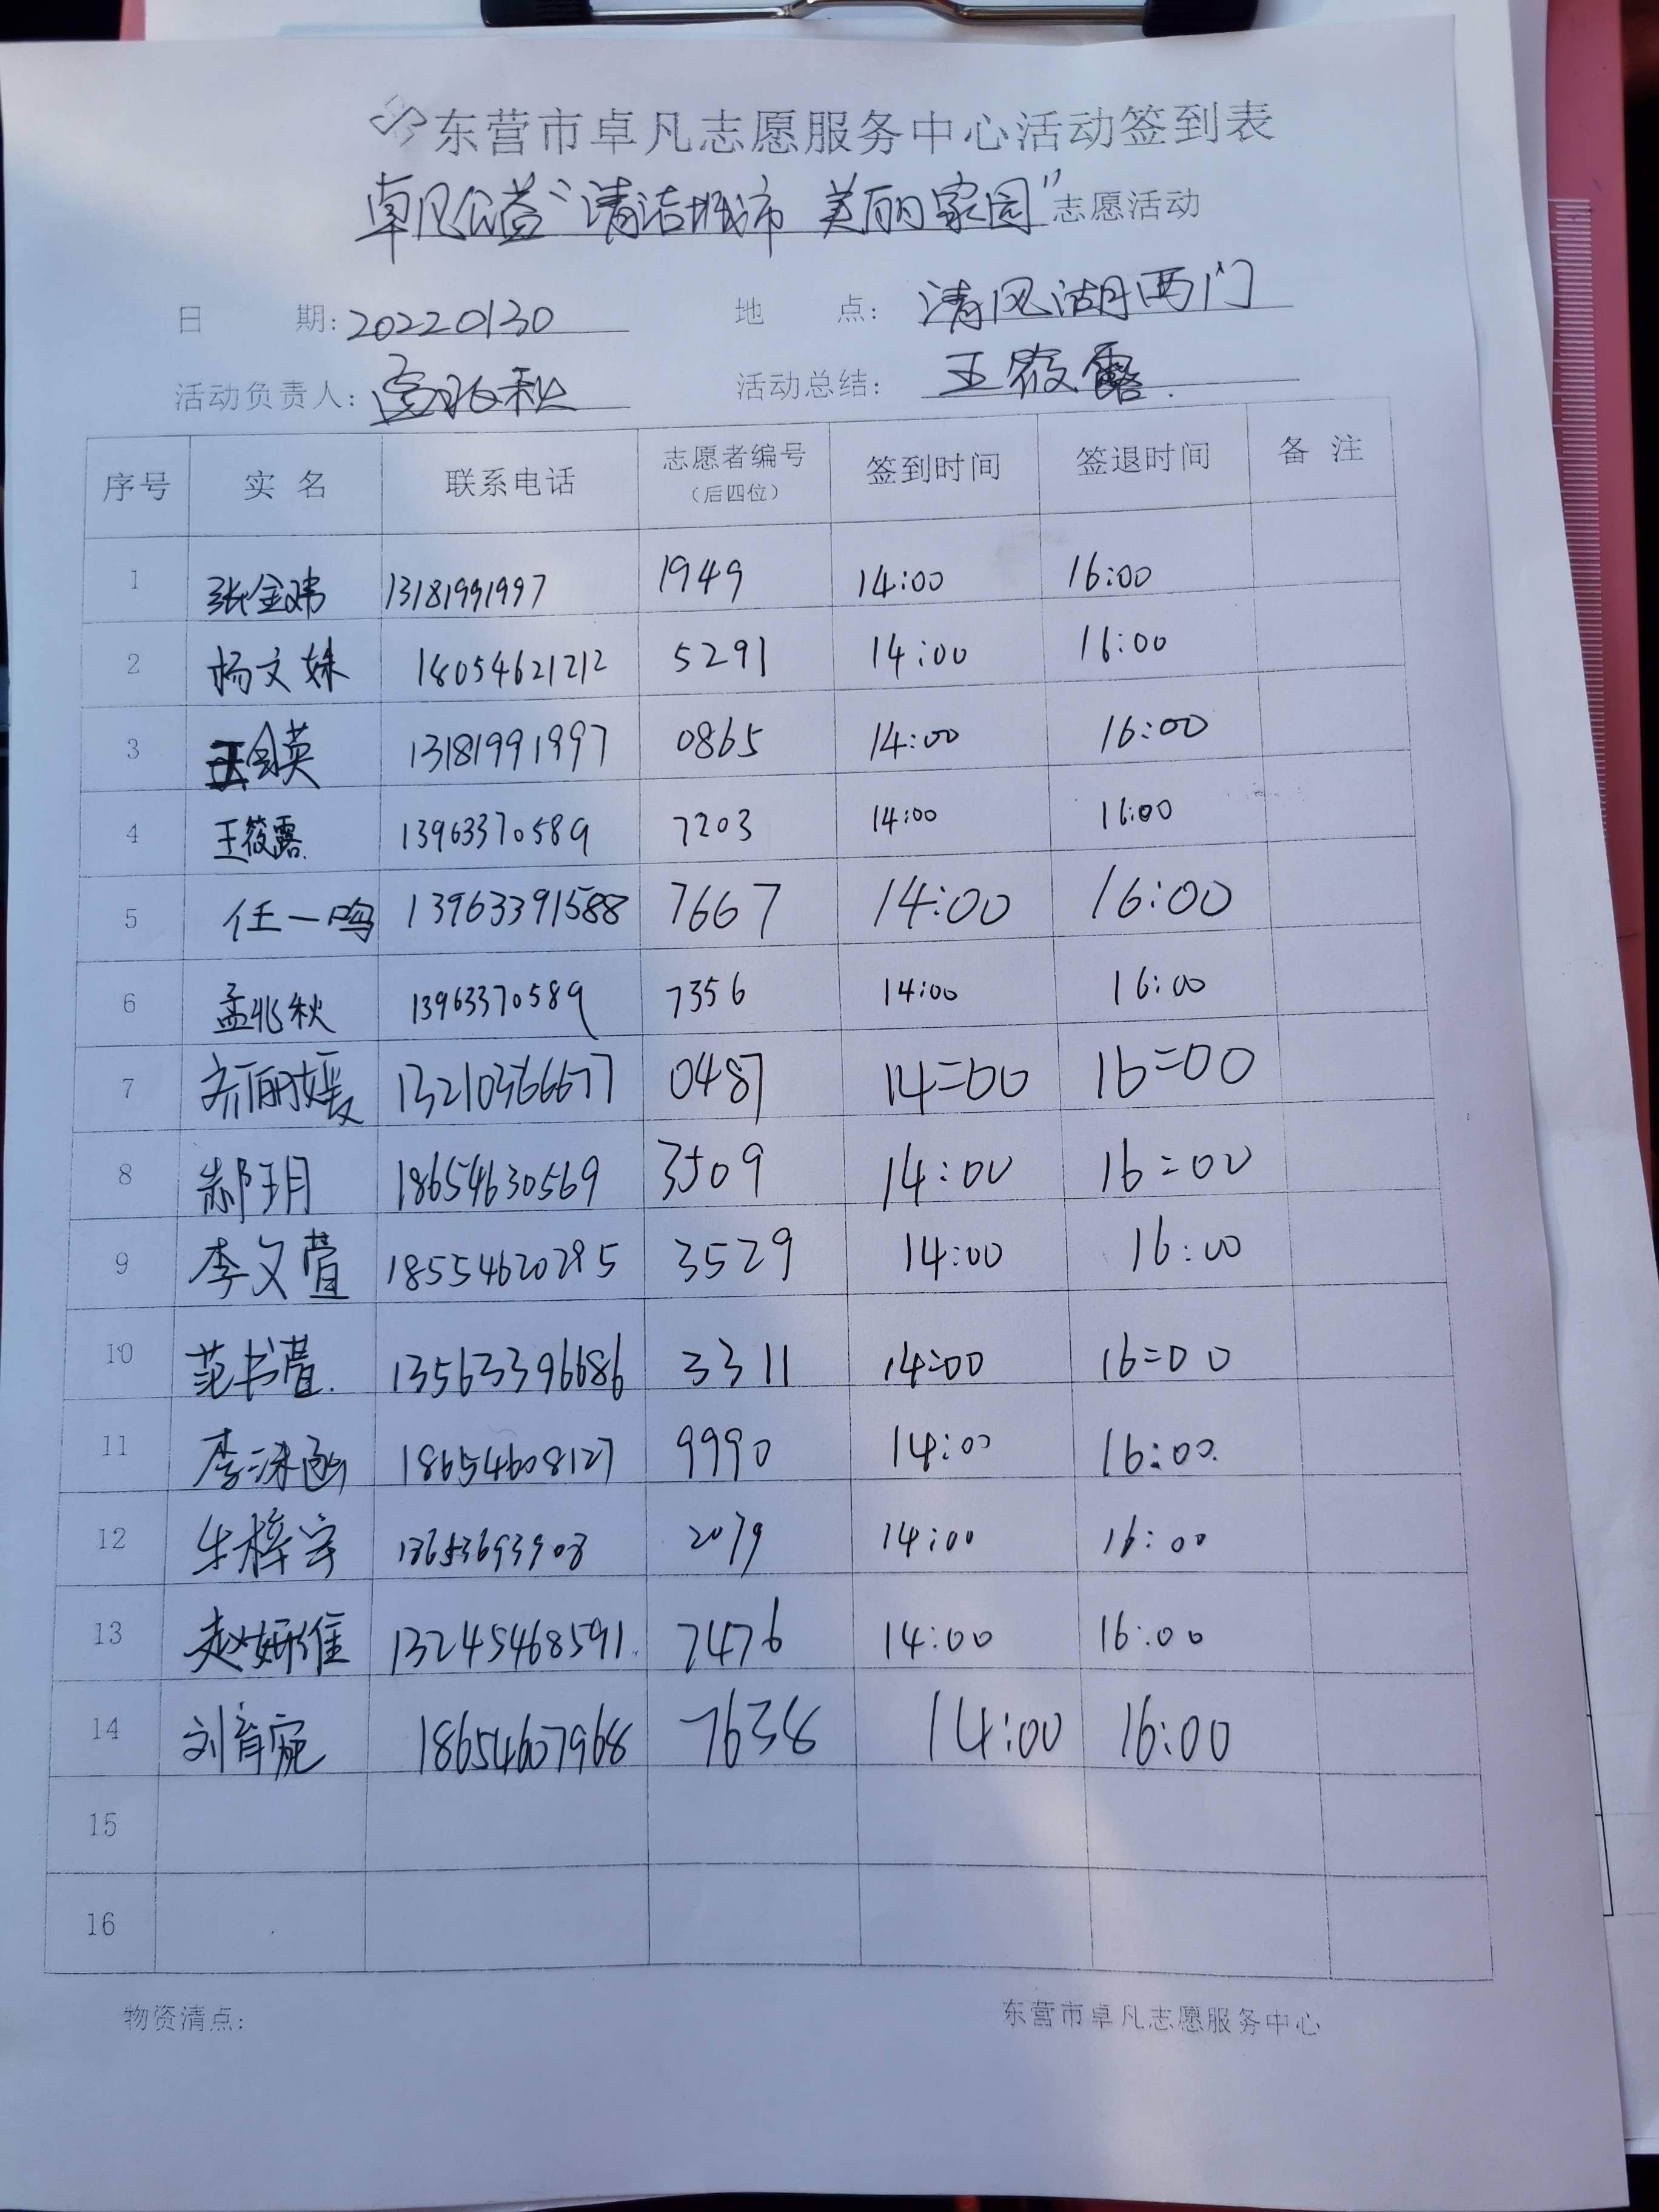 东营市卓凡志愿服务中心活动签到表
卓凡公益“清洁城市 美丽家园”志愿活动
日 期: 20220130 地 点: 清风湖西门
活动负责人: 活动总结: 王筱露.
序号 实名 联系电话 志愿者编号（后四位） 签到时间 签退时间 备注
1 张金玮 13181991997 1949 14:00 16:00
2 杨文姝 18054621212 5291 14:00 16:00
3 王会英 13181991997 0865 14:00 16:00
4 王筱露. 13963370589 7203 14:00 16:00
5 任一鸣 13963391588 7667 14:00 16:00
6 孟兆秋 13963370589 7356 14:00 16:00
7 齐丽媛 13210366677 0487 14=00 16=00
8 郝玥 18654630569 3509 14:00 16=00
9 李文萱 18554620295 3529 14:00 16:00
10 范书萱. 13563396686 3311 14:00 16=00
11 李沫函 18654608127 9990 14:00 16:00.
12 牛梓宇 13653693908 2079 14:00 16:00
13 赵妍维 13245468591. 7476 14:00 16:00
14 刘育宛 18654607968 7638 14:00 16:00
15
16
物资清点: 东营市卓凡志愿服务中心